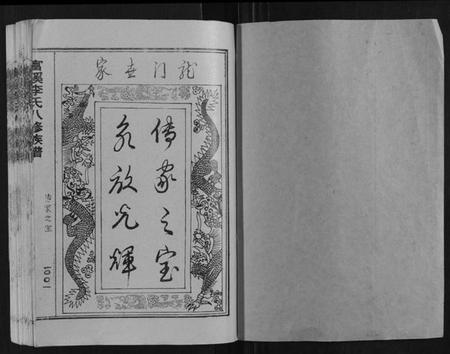 龙门世家
传家之宝
永放光辉
富溪李氏八修族谱
传家之宝
一〇〇一